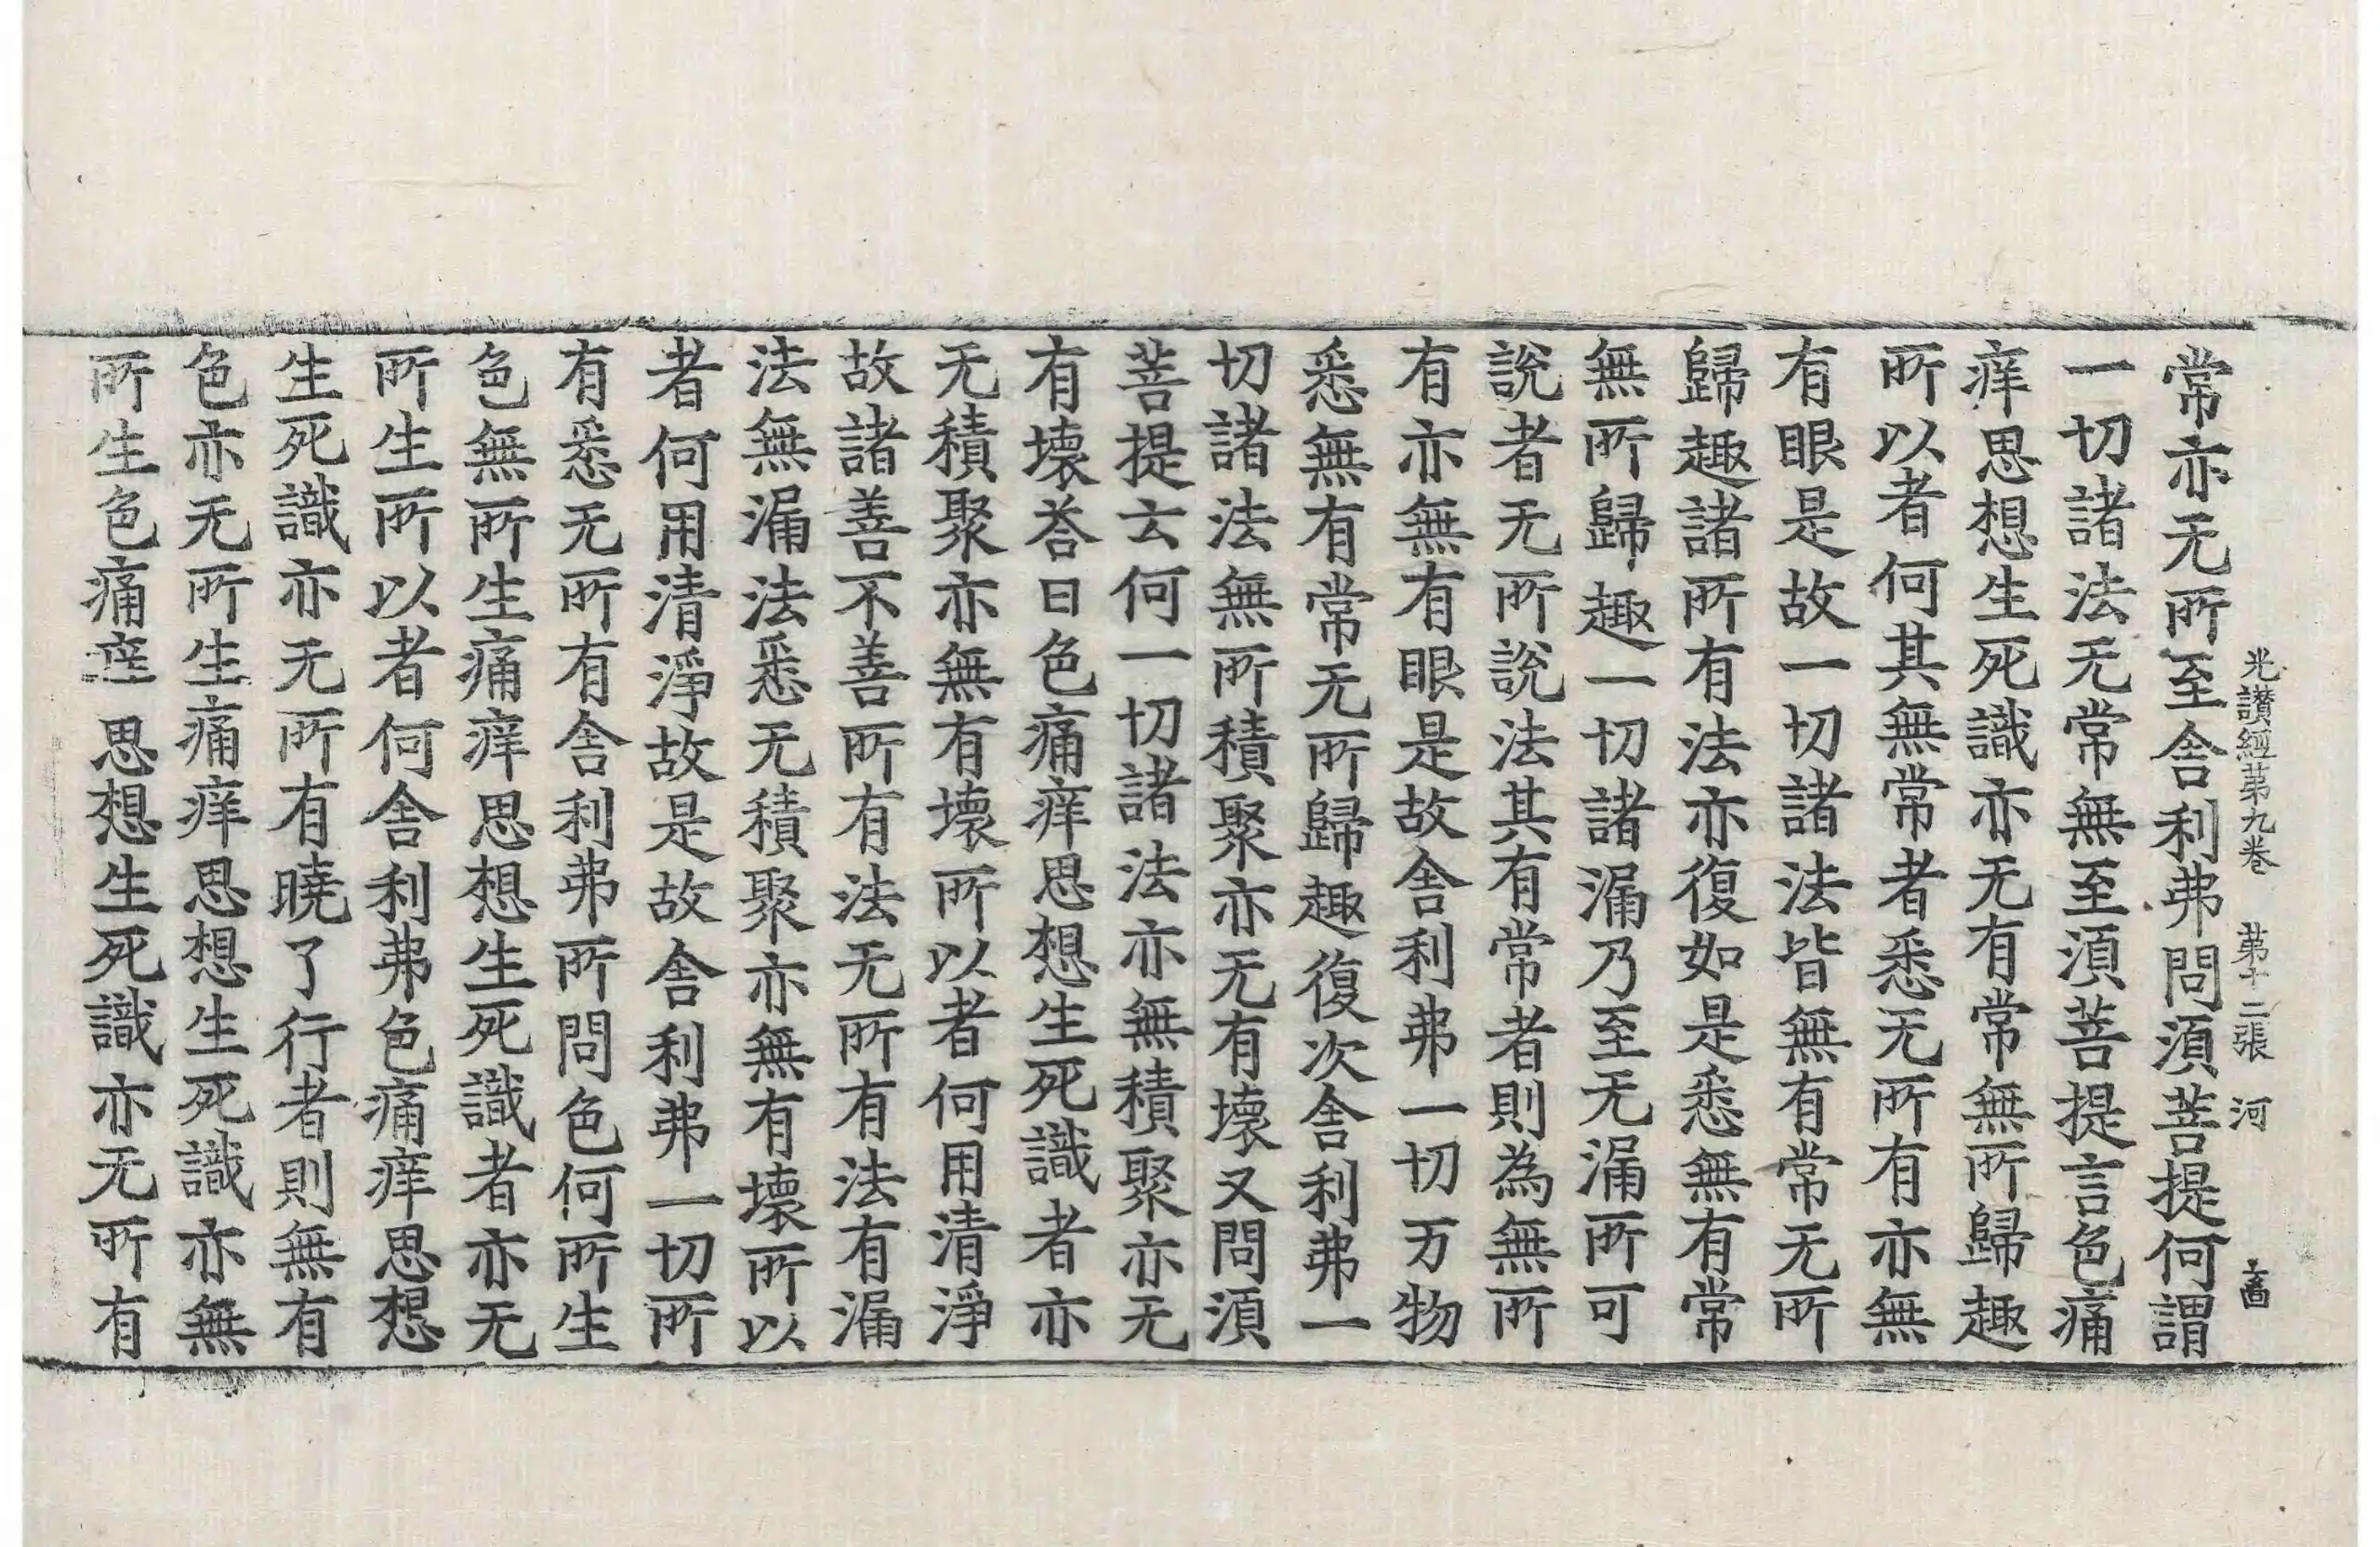 光讃經第九卷 第十二張 河
常亦无所至舍利弗問須菩提何謂
一切諸法无常無至須菩提言色痛
痒思想生死識亦无有常無所歸趣
所以者何其無常者悉无所有亦無
有眼是故一切諸法皆無有常无所
歸趣諸所有法亦復如是悉無有常
無所歸趣一切諸漏乃至无漏所可
說者无所說法其有常者則為無所
有亦無有眼是故舍利弗一切万物
悉無有常无所歸趣復次舍利弗一
切諸法無所積聚亦无有壞又問須
菩提云何一切諸法亦無積聚亦无
有壞荅曰色痛痒思想生死識者亦
无積聚亦無有壞所以者何用清淨
故諸善不善所有法无所有法有漏
法無漏法悉无積聚亦無有壞所以
者何用清淨故是故舍利弗一切所
有悉无所有舍利弗所問色何所生
色無所生痛痒思想生死識者亦无
所生所以者何舍利弗色痛痒思想
生死識亦无所有曉了行者則無有
色亦无所生痛痒思想生死識亦無
所生色痛痒思想生死識亦无所有